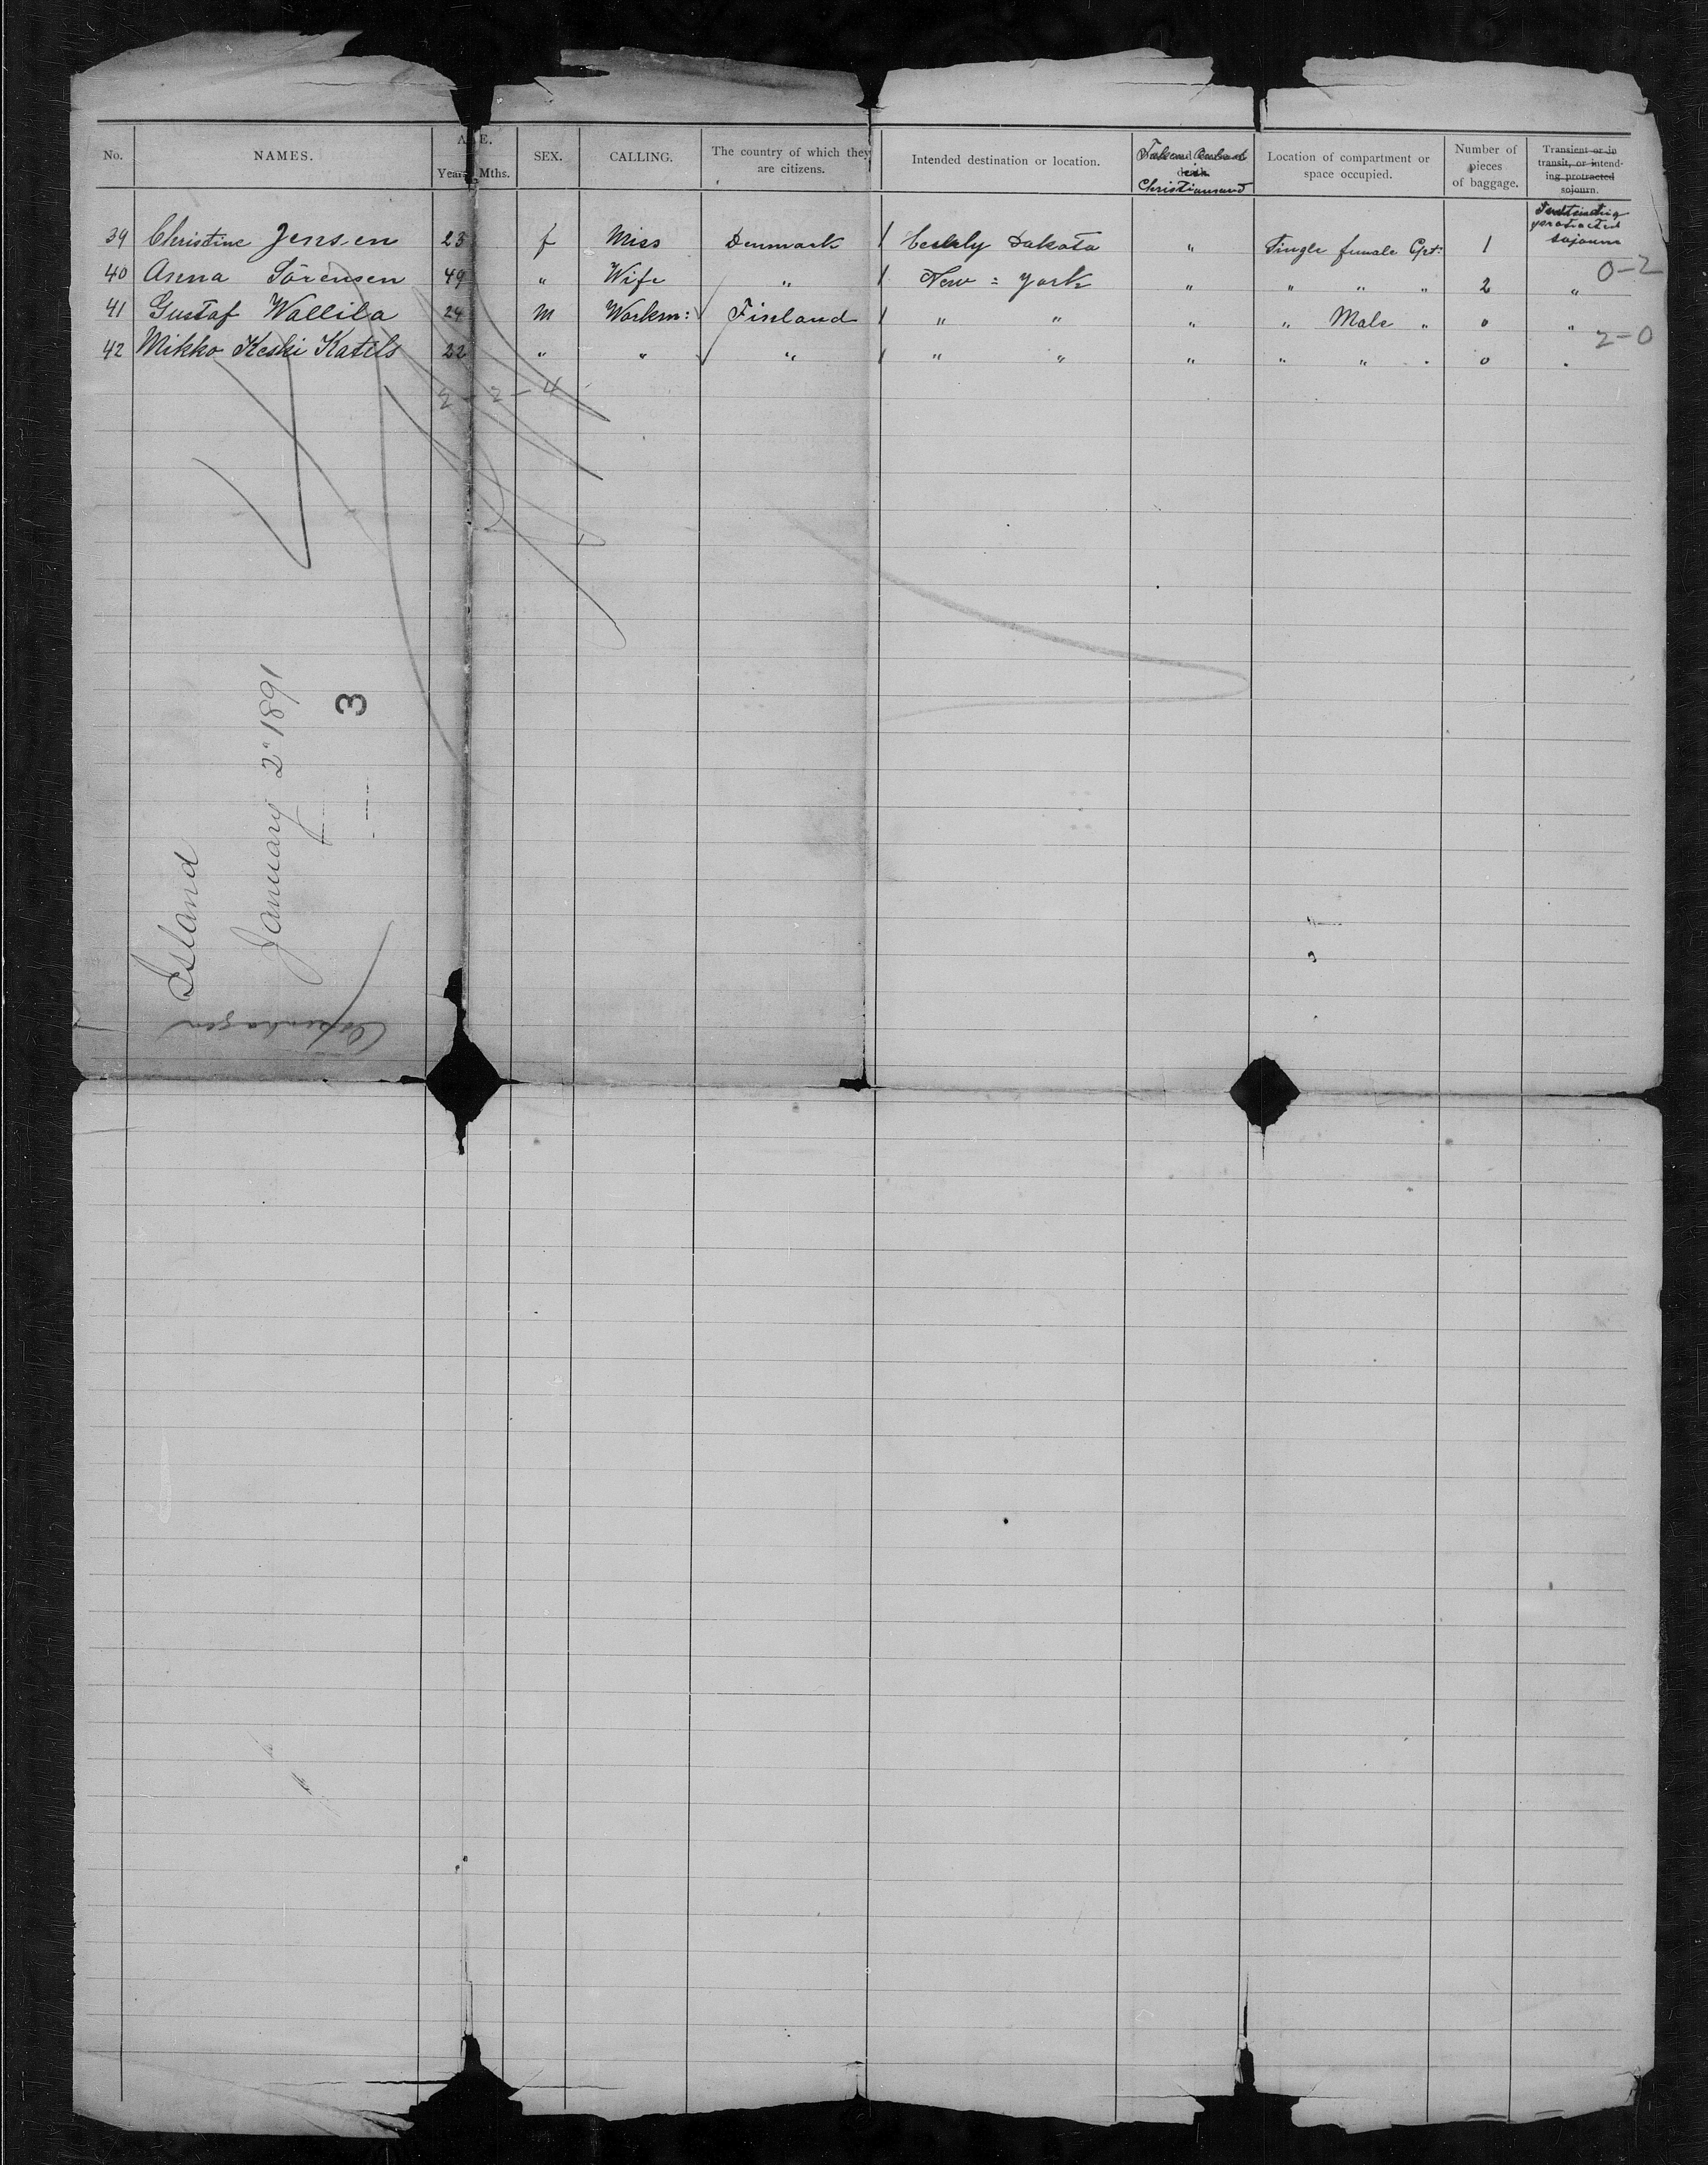 No. NAMES. AGE. Years. Mths. SEX. CALLING. The country of which they are citizens. Intended destination or location. Christiansand Location of compartment or space occupied. Number of pieces of baggage. Transient or in transit, or intending protracted sojourn.
protracted sojourn
39 Christine Jensen 23 f Miss Denmark Dakota " Single female Cpt: 1
0-2
40 Anna Sörensen 49 " Wife " New = York " " " " 2 "
41 Gustaf Wallila 24 m Workm: Finland " " " " Male " 0 "
2-0
42 Mikko Keski Katils 22 " " " " " " " " " 0 "
2-2-4
Island
January 2d 1891
3
Copenhagen